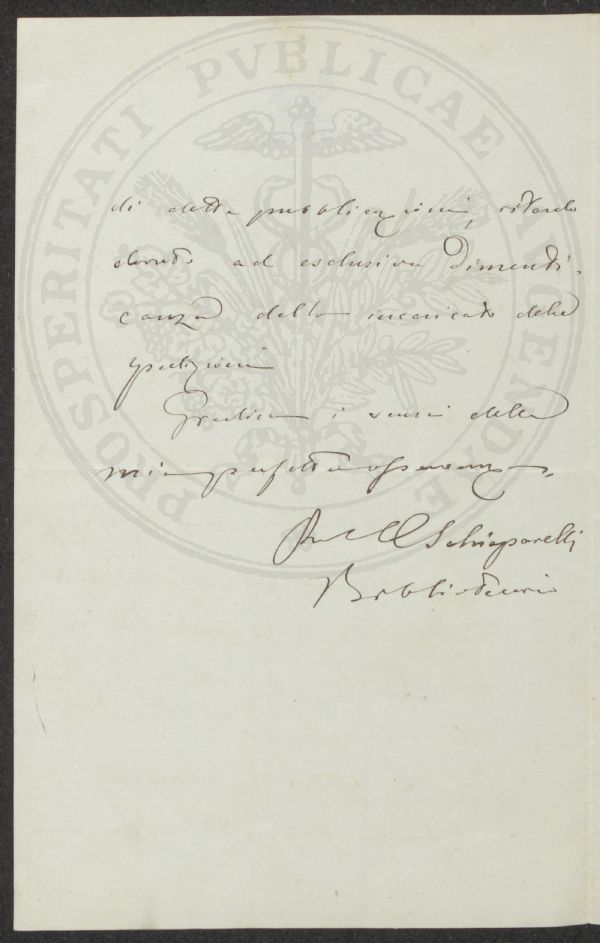 PROSPERITATI PVBLICAE AVGENDAE
di dette pubblicazioni, ritardo
dovuto ad esclusiva dimenti-
canza dello incaricato delle
spedizioni
Gradisca i sensi della
mia perfetta osservanza
Schiaparelli
Bibliotecario